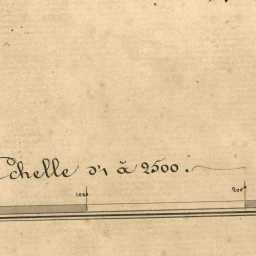 Echelle d'1 à 2500.
100
200